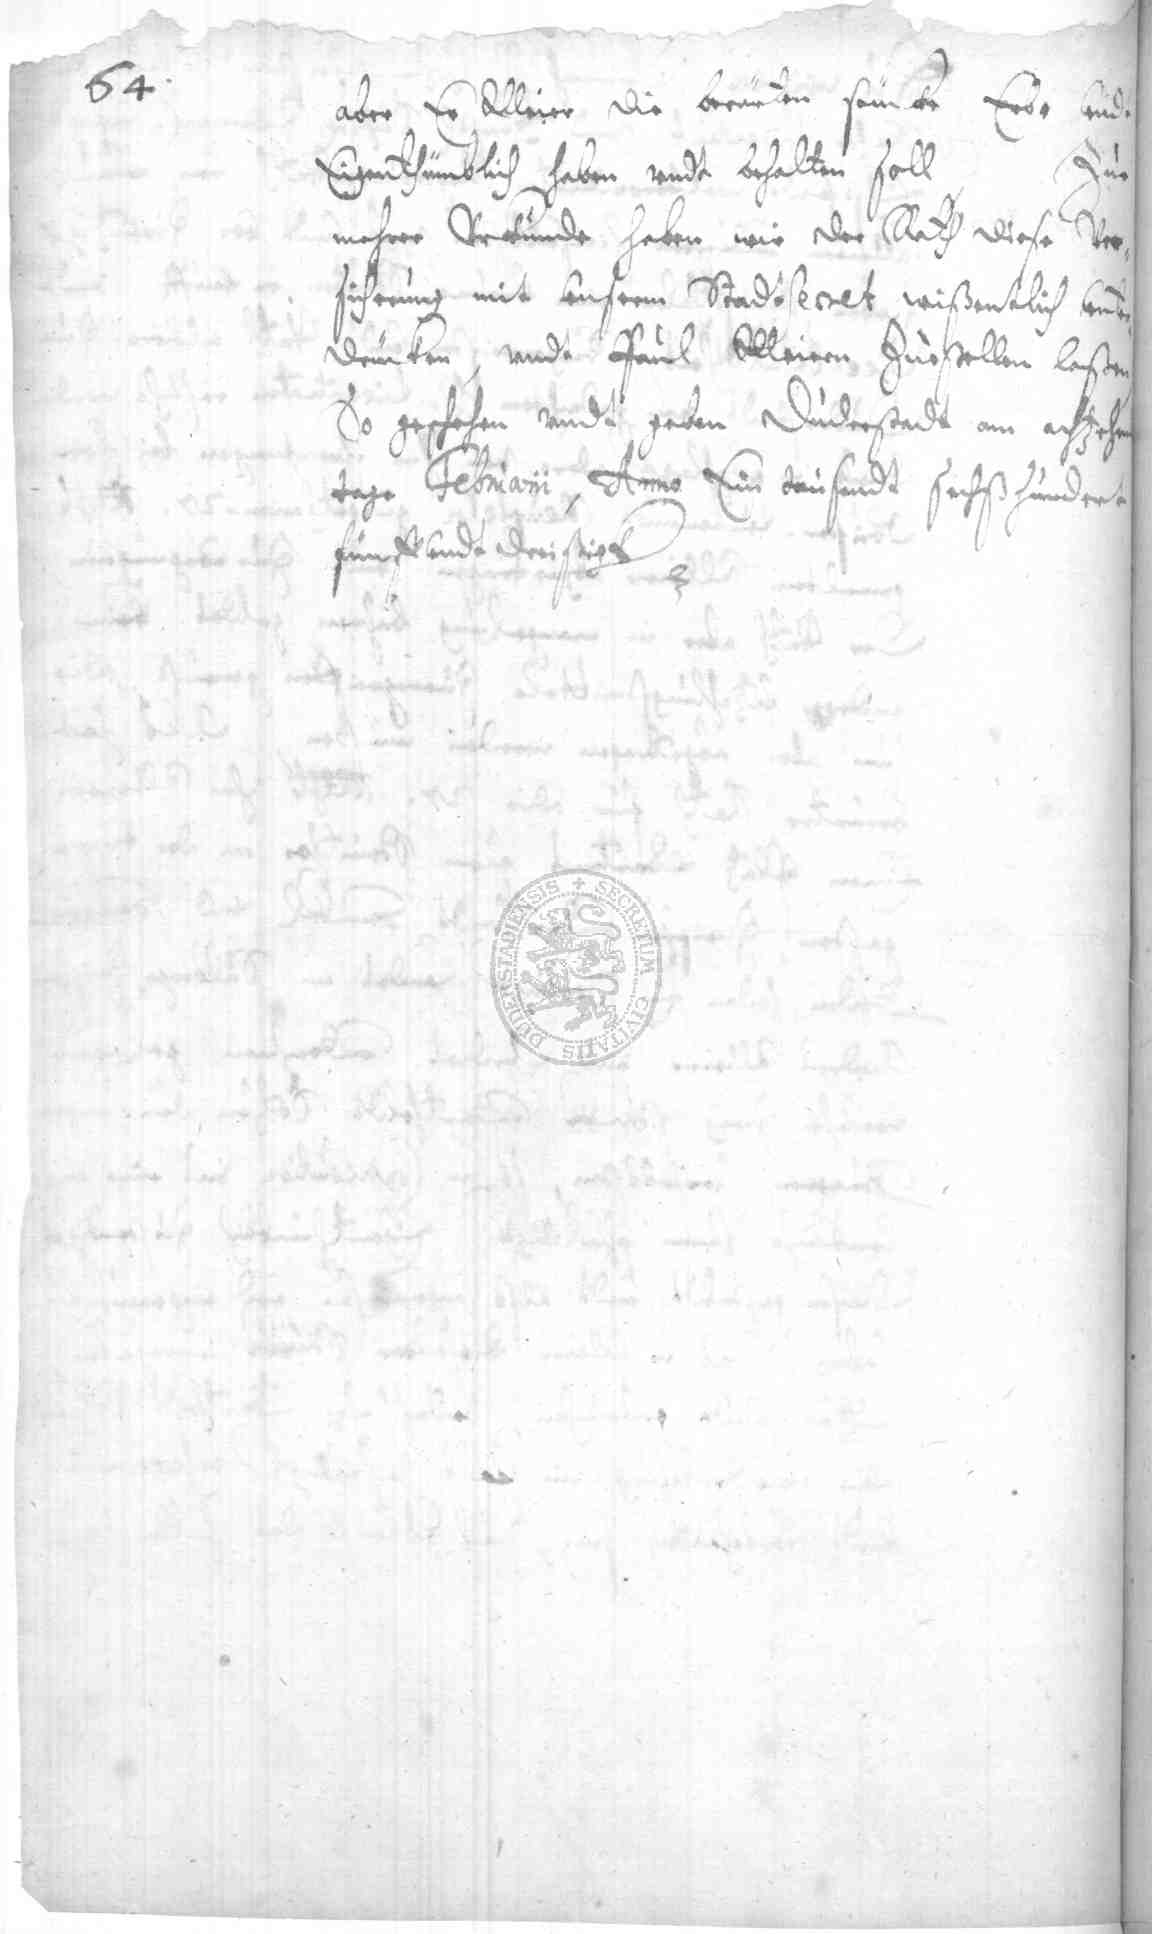 64.
aber Er Kleier die berürten stücke Erbe undt
Eigenthümblich haben undt behalten soll Zue
mehrer Urkunde haben wir der Rath diese Ver-
sicherung mit unserm Stadtsecret wißentlich unter-
drücken, undt Paul Kleiern Zuestellen laßen
So geschehen undt geben Duderstadt am achtzehen
tage Februarii, Anno Ein tausendt sechßhundert
fünff undt dreissigk
SECRETUM CIVITATIS DUDERSTADIENSIS